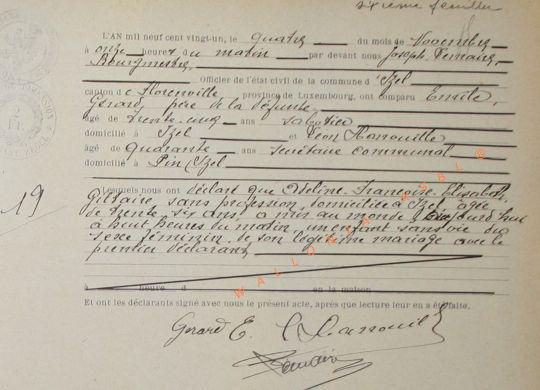 sixième feuillet
L'AN mil neuf cent vingt-un, le quatre du mois de Novembre
à onze heures du matin par devant nous Joseph Lemaire,
Bourgmestre
Officier de l'état civil de la commune d'Izel
canton de Florenville, province de Luxembourg, ont comparu Emile,
Gérard, père de la défunte
âgé de trente-cinq ans sabotier
domicilié à Izel et Léon Hanouille
âgé de quarante ans secrétaire communal
domicilié à Pin (Izel
19
Lesquels nous ont déclaré que Adeline-Françoise-Elisabeth
Gillaire, sans profession, domiciliée à Izel, âgée
de trente six ans, a mis au monde
à huit heures du matin, un enfant sans vie du
sexe féminin, de son légitime mariage avec le
premier déclarant
à heure d en la maison
Et ont les déclarants signé avec nous le présent acte, après que lecture leur en a été faite.
Gerard E.
Lemaire
WALLONIA